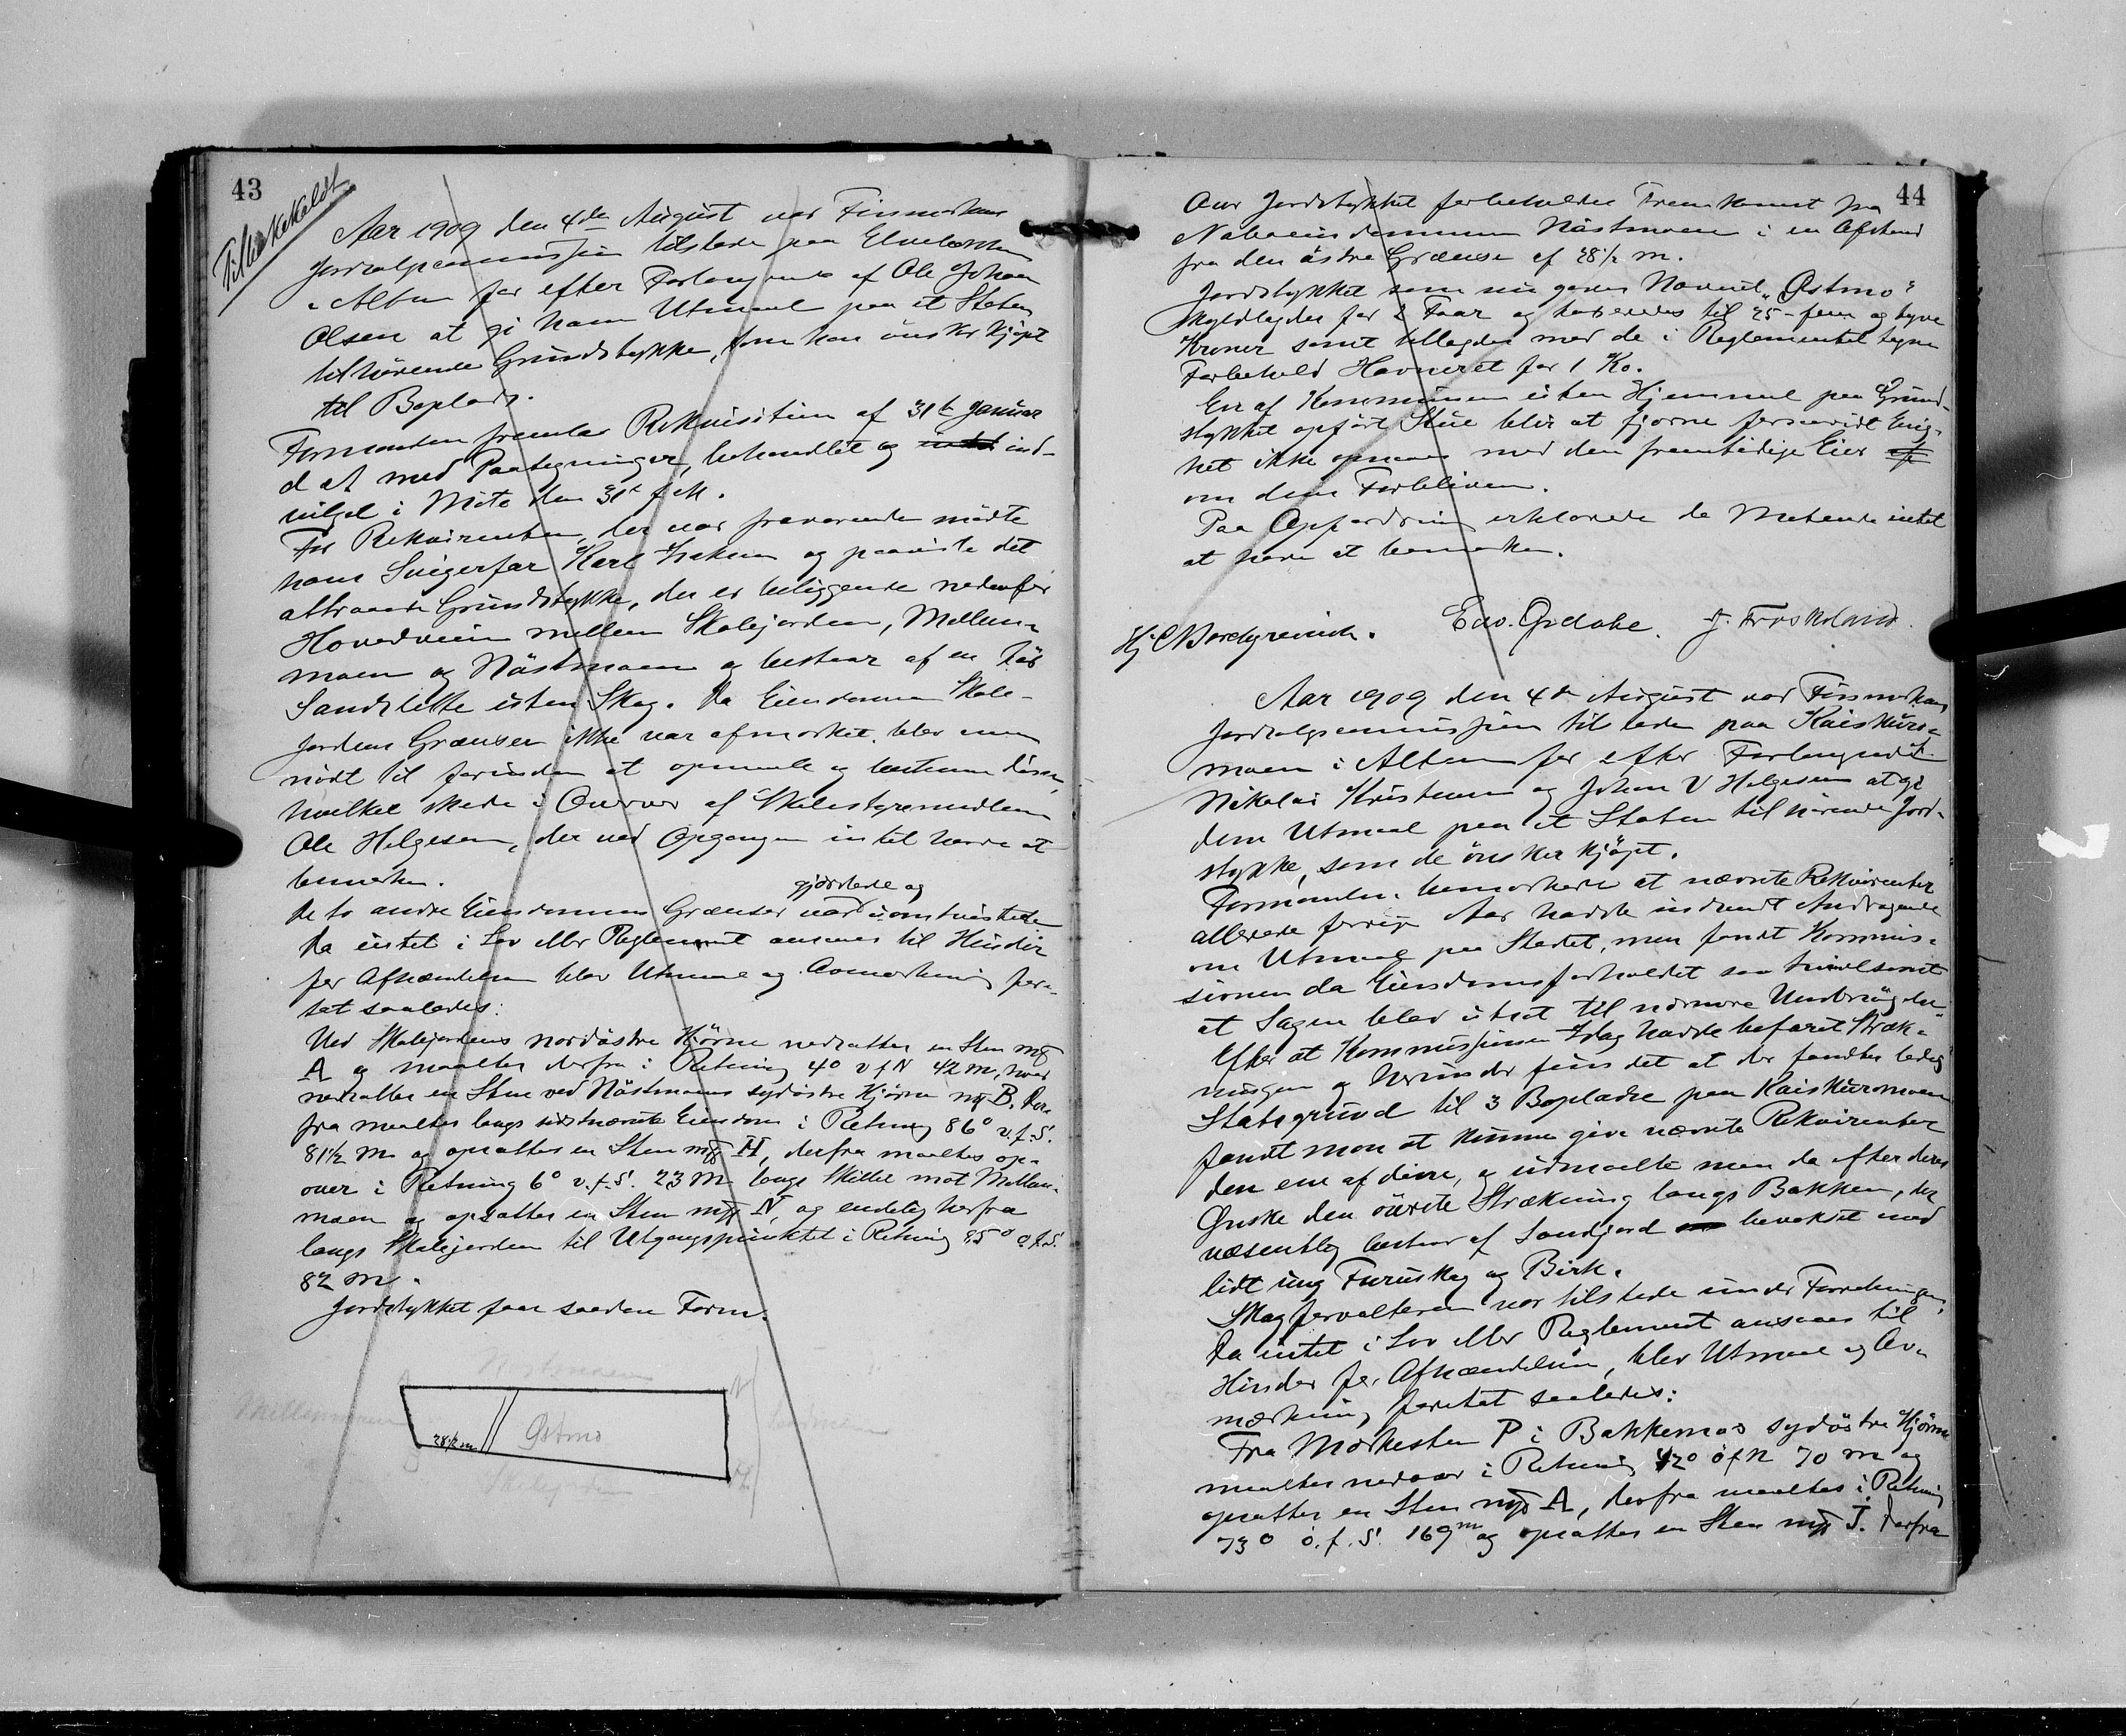 43
Tilbakekaldt
Aar 1909 den 4de August var Finmarkens
Jordsalgscommission tilstede paa Elvebakken
i Alten for efter Forlangende af Ole Johan
Olsen at gi ham Utmaal paa et Staten
tilhørende Grundstykke, som han ønsker kjøpt
til Boplads.
Formanden fremla Rekvisition af 31te Januar
d. A. med Paategninger, behandlet og ind-
vilget i Møte den 31te f. M.
For Rekvirenten, der var fraværende mødte
hans Svigerfar Karl Isaksen og paaviste det
attraaede Grundstykke, der er beliggende nedenfor
Hovedveien mellem Skolejorden, Mellem-
moen og Nöstmoen og bestaar af en tör
Sandslette uten Skog. Da Eiendommen Skole-
jordens Grænser ikke var afmerket, blev man
nödt til forinden at opmaale og bestemme disse,
hvilket skede i Overvær af Skolestyremedlem
Ole Helgesen, der ved Opgangen intet havde at
bemerke.
gjærdede og
De to andre Eiendommes Grænser var uomtvistede
Da intet i Lov eller Reglement ansaaes til Hinder
for Afhændelsen blev Utmaal og Avmerkning fore-
tat saaledes:
Ved Skolejordens nordöstre Hjörne nedsattes en Sten mrk
A og maaltes derfra i Retning 4° v f N 42 m, hvor
nedsattes en Sten ved Nöstmoens sydöstre Hjörne mrk B. Der-
fra maaltes langs sidstnævnte Eiendom i Retning 86° v. f. S.
81½ m og opsattes en Sten mrk H, derfra maaltes op-
over i Retning 6° v. f. S. 23 m langs Skillet mot Mellem-
moen og opsattes en Sten mrk N, og endelig herfra
langs Skolejorden til Utgangspunktet i Retning 85° ö. f. S.
82 m.
Jordstykket faar saadan Form:
Mellemmoen
28½ m
Østmo
Skolejorden
44
Over Jordstykket forbeholdes Fremkomst fra
Naboeiendommen Nöstmoen i en Afstand
fra den östre Grænse af 28½ m.
Jordstykket som nu gaves Navnet "Østmo"
skyldlagdes for 2 Faar og taxeredes til 25 - fem og tyve
Kroner samt tillagdes med de i Reglementet tagne
Forbehold Havneret for 1 Ko.
En af Kommunen uten Hjemmel paa Grund-
stykket opført Stue blir at fjerne forsaavidt Enig-
het ikke opnaaes med den fremtidige Eier
om dens Forbliven.
Paa Opfordring erklærede de Møtende intet
at have at bemerke.
Edv. Opdahl. J. Froskeland.
Aar 1909 den 4de August var Finmarkens
Jordsalgscommission tilstede paa Kaiskuro-
moen i Alten for efter Forlangende af
Nikolai Kristensen og Johan V Helgesen at gi
dem Utmaal paa et Staten tilhørende Jord-
stykke, som de önsker kjöpt.
Formanden bemerkede at nævnte Rekvirenter
allerede forrige Aar hadde indsendt Andragende
om Utmaal paa Stedet, men fandt Kommis-
sionen da Eiendomsforholdet saa tvivlsomt
at Sagen blev utsat til nærmere Undersögelse.
Efter at Kommissionen Idag hadde befaret Stræk-
ningen og herunder fundet at der fandtes ledig
Statsgrund til 3 Bopladse paa Kaiskuromoen
fandt man at kunne give nævnte Rekvirenter
den ene af disse, og utmaalte man da efter deres
Ønske den överste Strækning langs Bakken, der
væsentlig bestaar af Sandjord bevokset med
lidt ung Furuskog og Birk.
Skogforvalteren var tilstede under Forretningen.
Da intet i Lov eller Reglement ansaaes til
Hinder for Afhændelsen, blev Utmaal og Av-
merkning foretat saaledes:
Fra Merkesten P i Bakkemos sydöstre Hjörne
maaltes nedover i Retning 42° ö f N 70 m og
opsattes en Sten mrk A, derfra maaltes i Retning
73° ö. f. S. 169 m og opsattes en Sten mrk J. Derfra